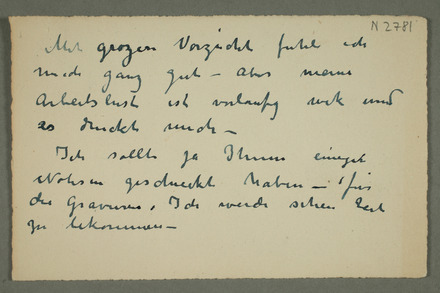 N 2781
Mit grozem Vorzicht fühl ich
mich ganz gut – aber meine
Arbeitslust ist vorlaufig wek und
es druckt mich –
Ich sollte ja Ihnen einige
geschickt haben – für
die Gravuren, Ich werde schon Zeit
zu bekommen –